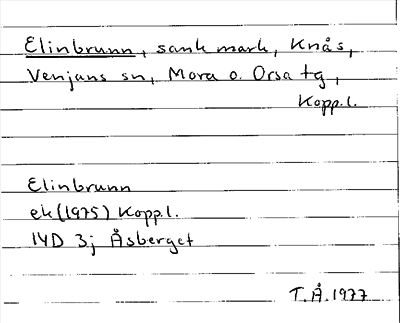 Elinbrunn, sank mark, Knås,
Venjans sn, Mora o. Orsa tg,
Kopp.l.
Elinbrunn
ek (1975) Kopp.l.
14D 3j Åsberget
T.Å. 1977